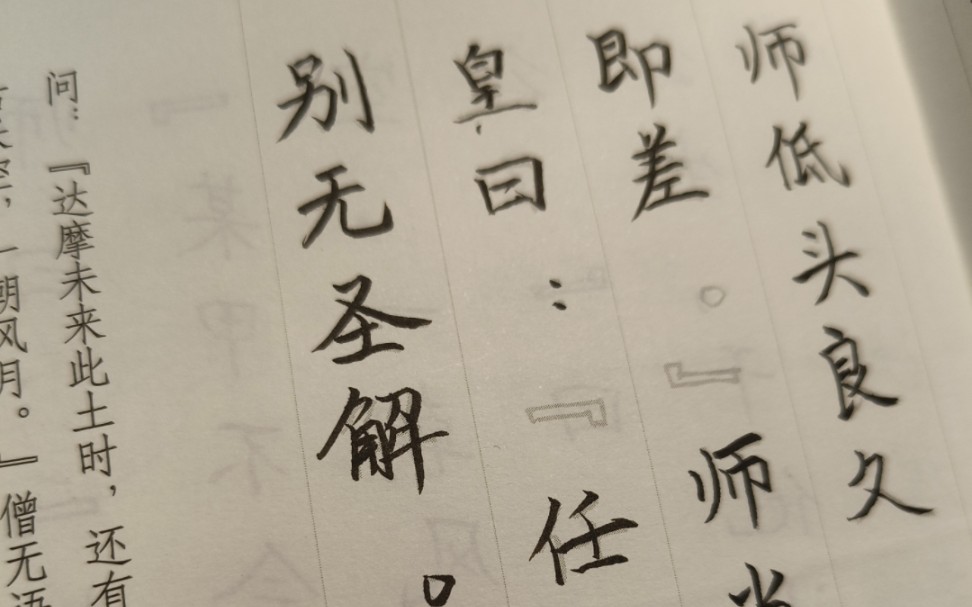 师低头良久
即差。』师
皇曰：『任
别无圣解。
问：『达摩未来此土时，还有
一朝风月。』僧无语